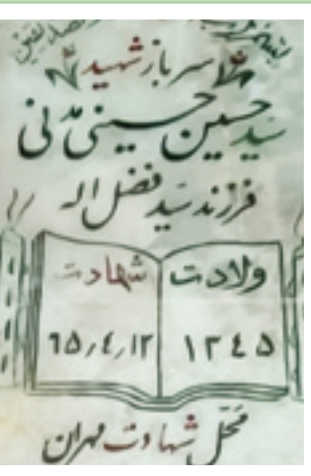 سرباز شهید
سید حسین حسینی مدنی
فرزند سید فضل اله
ولادت شهادت
۱۳۴۵ ۶۵٫۴٫۱۲
محل شهادت مهران